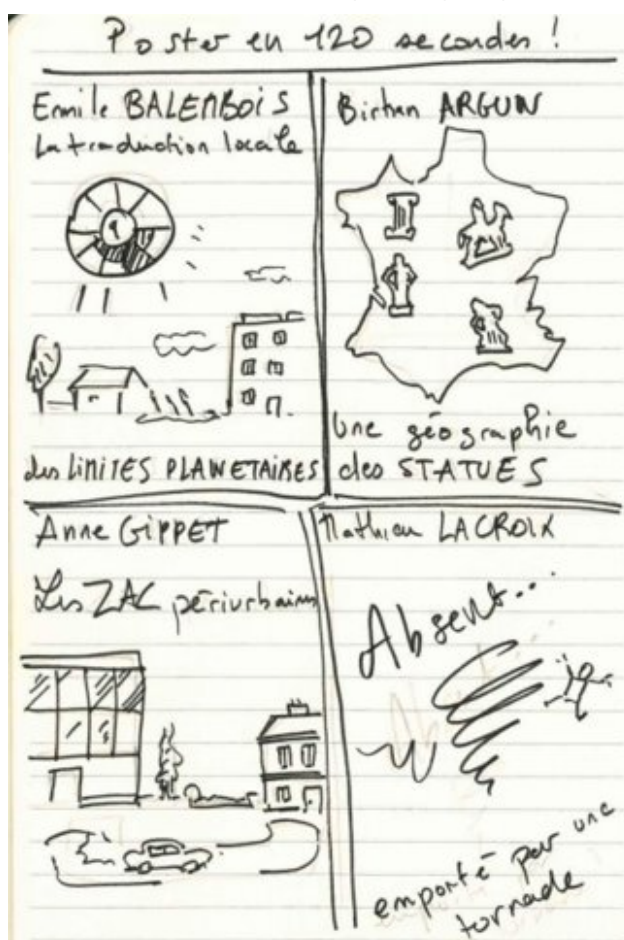 Poster en 120 secondes !
Emile BALEMBOIS
La traduction locale
des LIMITES PLANETAIRES
Birhan ARGUN
Une géographie
des STATUES
Anne GIPPET
Les ZAC périurbaines
Mathieu LACROIX
Absent...
emporté par une
tornade